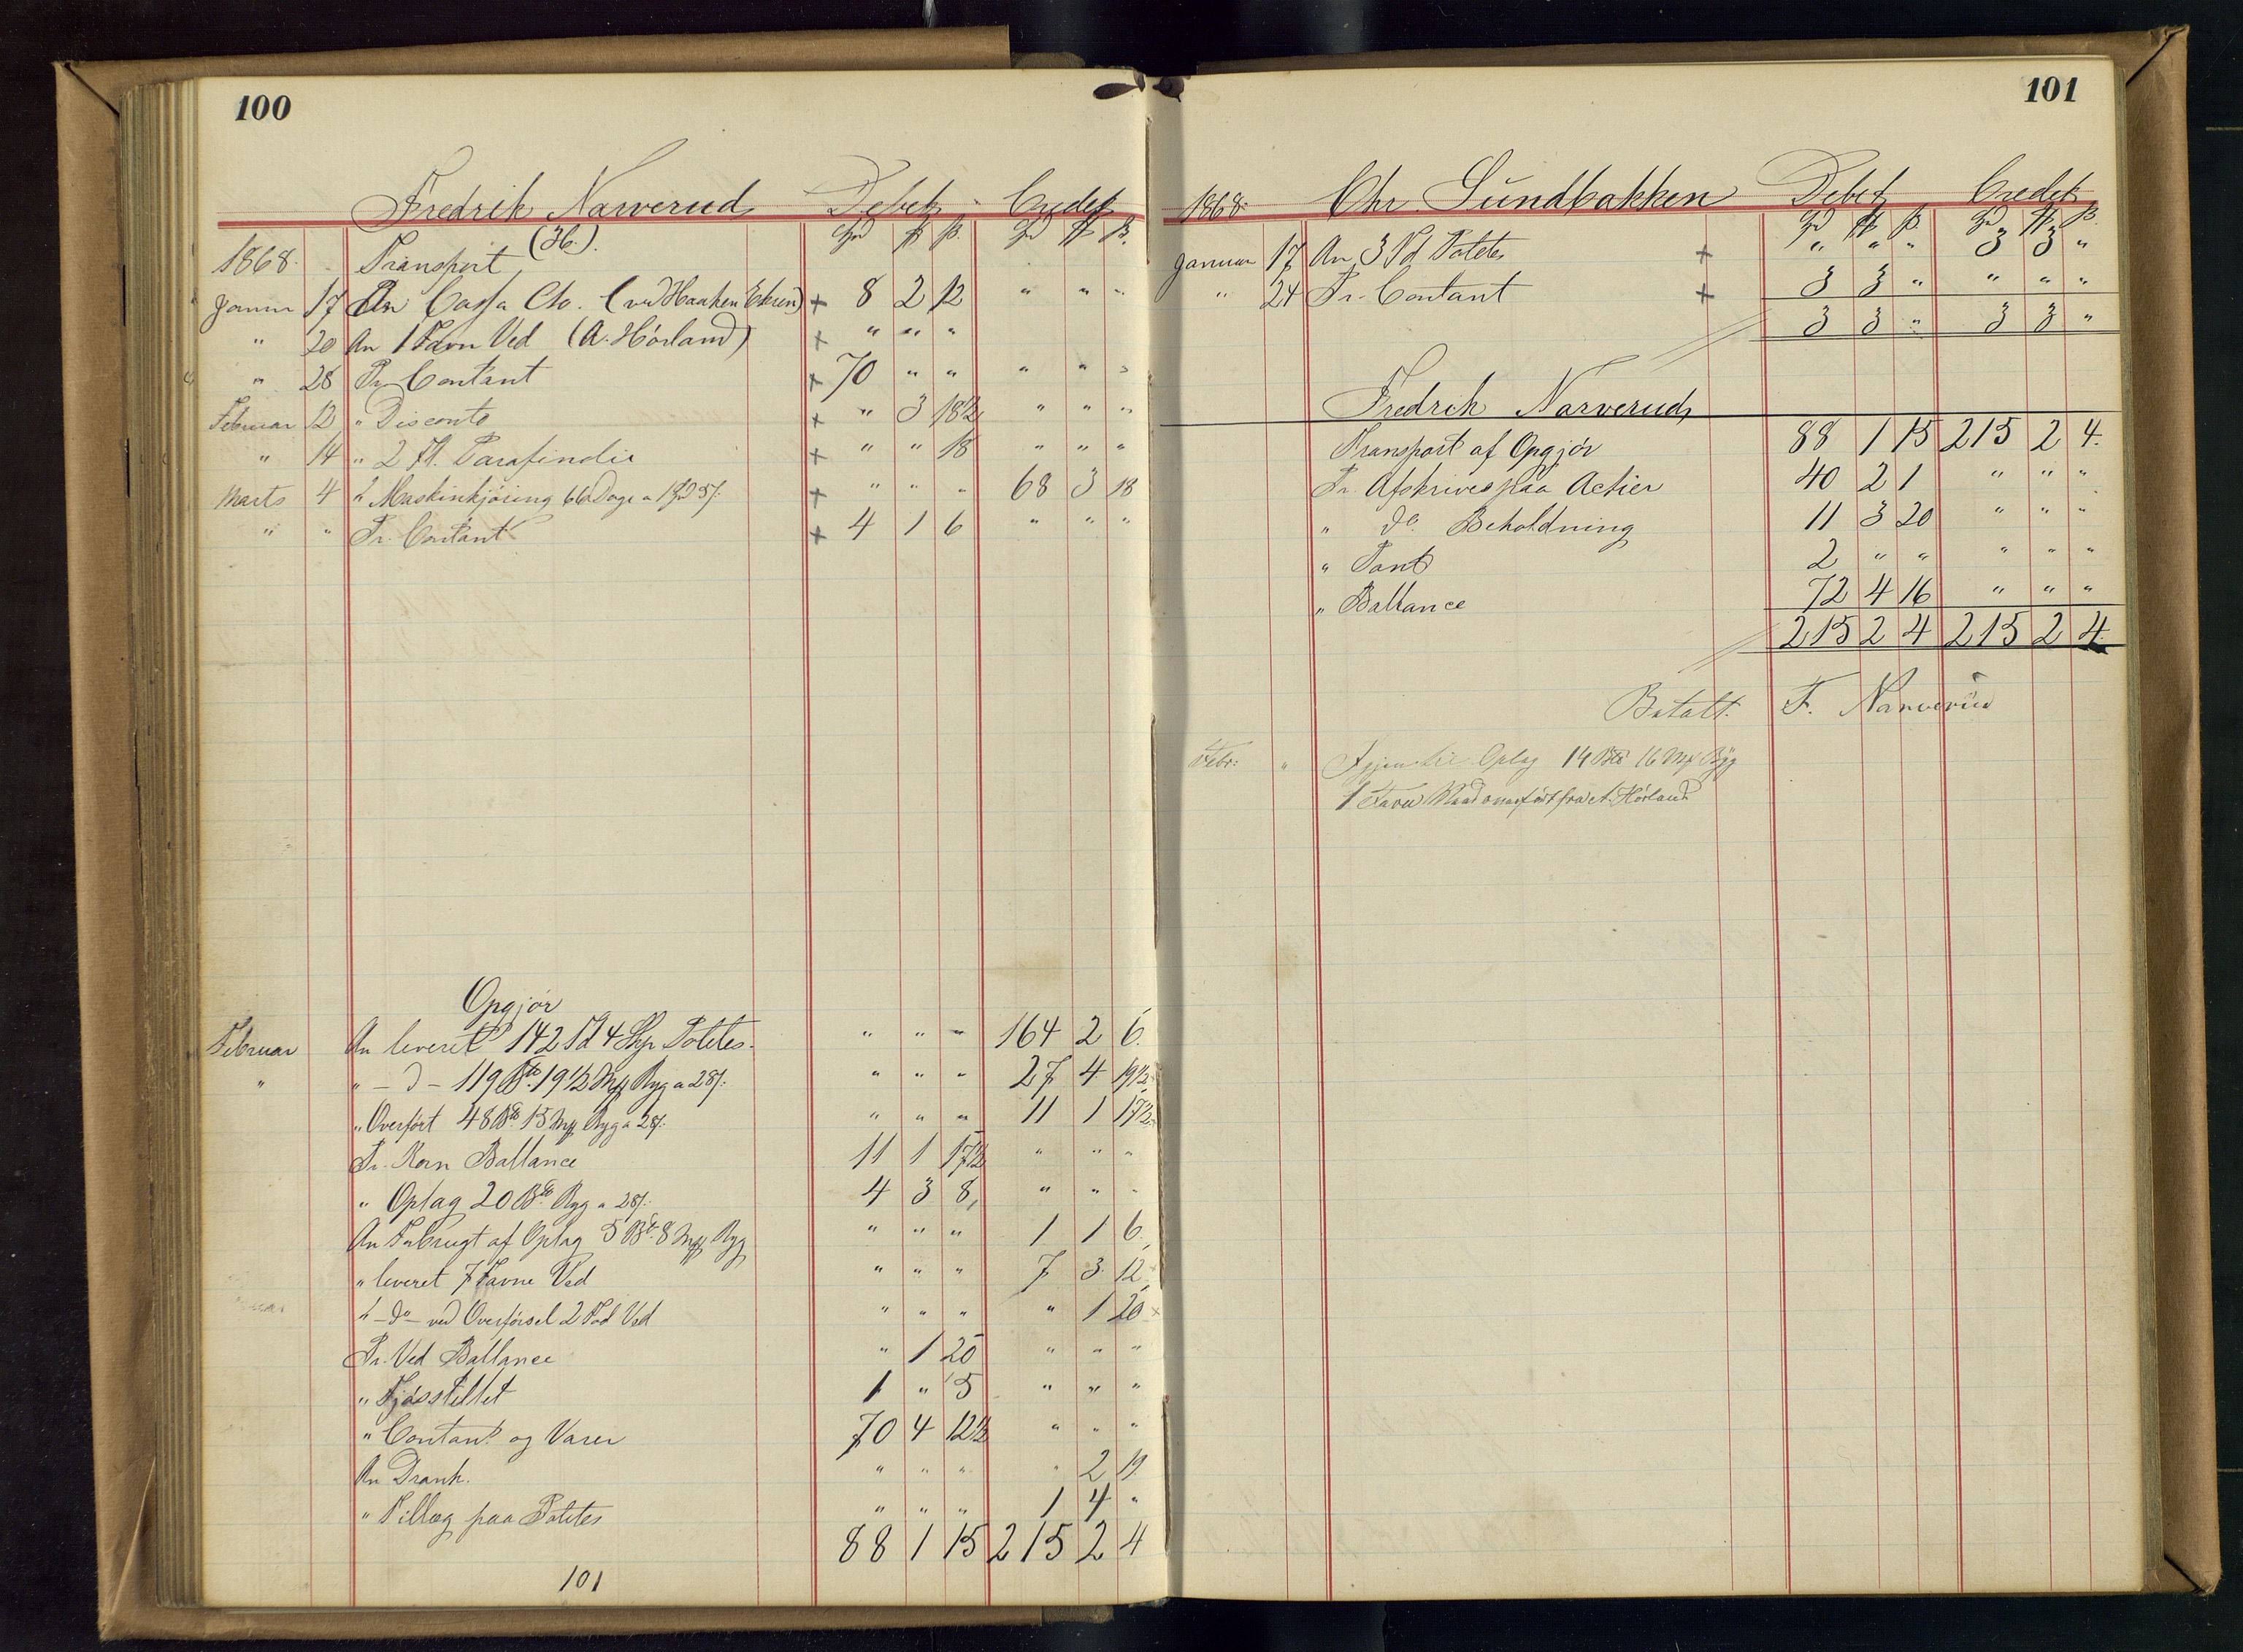 100
Fredrik Narverud Debet Credit
(H.).
Spd ß. Spd ß.
1868. Transport
Januar 17 An Cassa Cto. (ved Haaken Ekren) + 8 2 12 " " "
" 20 An 1 Favn Ved (A. Hörland) + " " "
" 28 Pr. Contant + 70 " " " " "
Februar 12 " Disconto + " 3 18½ " " "
" 14 " 2 Fl. Parafinolie + " " 18 " " "
Marts 4 " Maskinkjöring 66 Dage a 1 Spd 5/: + " " " 68 3 18
" " Pr. Contant + 4 1 6 " " "
Opgjör
Februar An leveret 142 Td 4 Skp Potetes. " " " 164 2 6.
" " - d - 119 19½ Byg a 28/: " " " 27 4 19½
" Overfört 48 15 Byg a 28/: " " " 11 1 17½
Pr. Korn Ballance 11 1 17½ " " "
" Oplag 20 Byg a 28/: 4 3 8, " " "
An Forbrugt af Oplag 5 8 Byg " " " 1 1 6.
" leveret 7 Favne Ved " " " 7 3 12
" - do - ved Overförsel 2 Fod Ved " " " " 1 20
Pr. Ved Ballance " 1 20 " " "
" Fjösstellet 1 " 5 " " "
" Contant og Varer 70 4 12½ " " "
An Drank. " " " " 2 19
" Tillæg paa Potetes " " " 1 4 "
88 1 15 215 2 4
101
101
1868. Chr. Sundbakken Debet Credit
Spd ß. Spd ß.
Januar 17 An 3 Td Potetes + " " " 3 3 "
" 24 Pr. Contant + 3 3 " " " "
3 3 " 3 3 "
Fredrik Narverud
Transport af Opgjör 88 1 15 215 2 4.
Pr. Afskrives paa Actier 40 2 1 " " "
" do. Beholdning 11 3 20 " " "
" Pant 2 " " " " "
" Ballance 72 4 16 " " "
215 2 4 215 2 4.
Betalt. F. Narverud
Febr: " Oplag 14 16 Byg
1 Favn fra A. Hörland